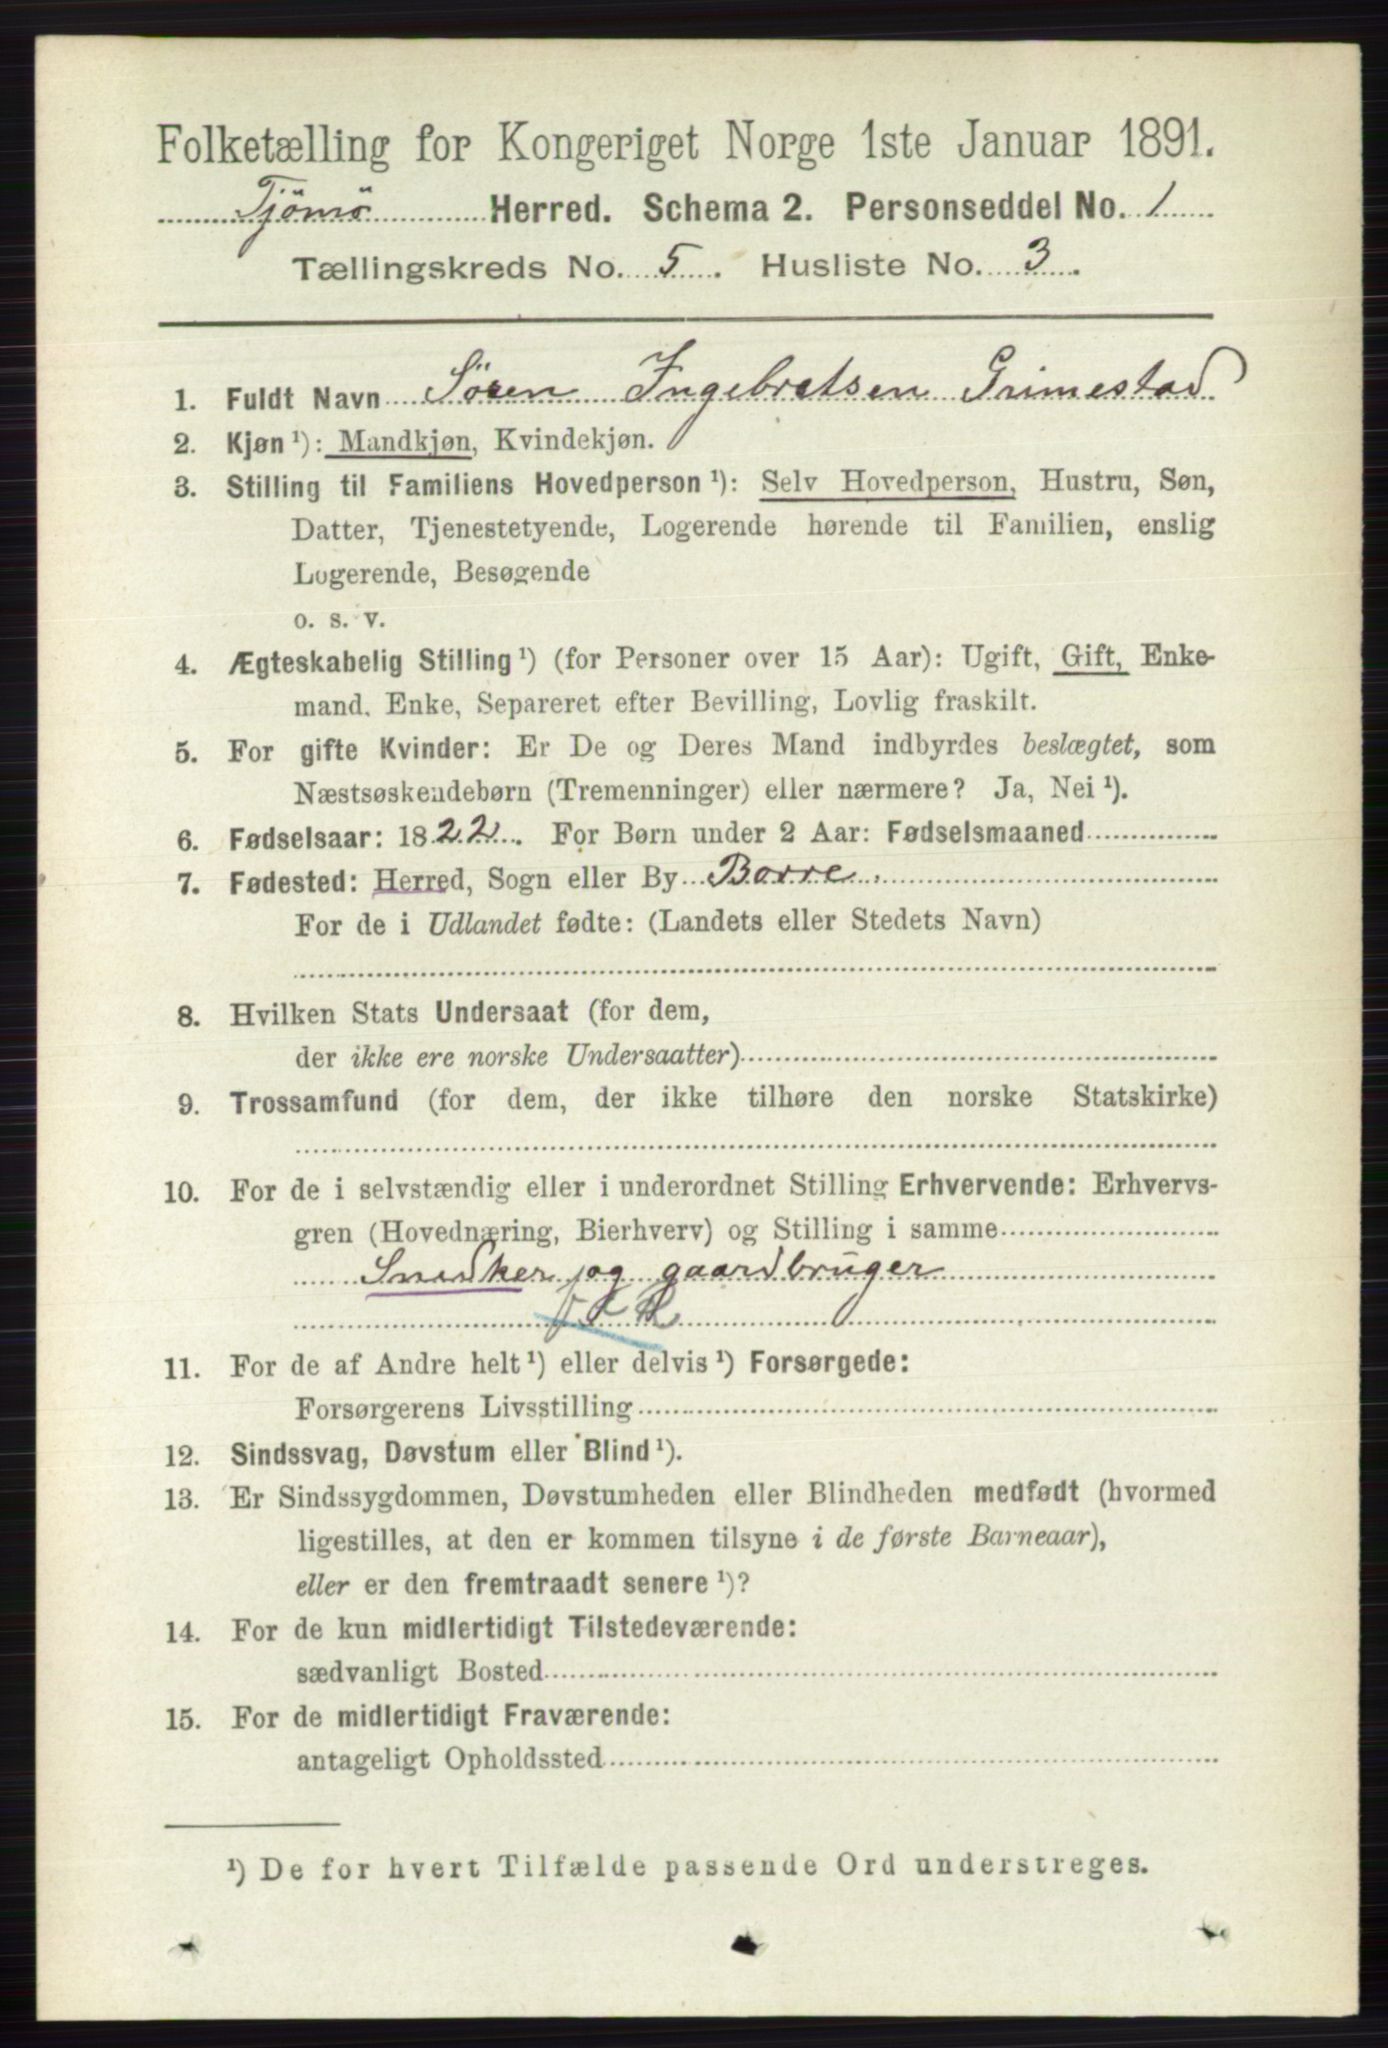 Folketælling for Kongeriget Norge 1ste Januar 1891.
Tjömö Herred. Schema 2. Personseddel No. 1
Tællingskreds No. 5. Husliste No. 3.
1. Fuldt Navn Sören Ingebretsen Grimestad
2. Kjøn ¹): Mandkjøn, Kvindekjøn.
3. Stilling til Familiens Hovedperson ¹): Selv Hovedperson, Hustru, Søn,
Datter, Tjenestetyende, Logerende hørende til Familien, enslig
Logerende, Besøgende
o. s. v.
4. Ægteskabelig Stilling ¹) (for Personer over 15 Aar): Ugift, Gift, Enke-
mand, Enke, Separeret efter Bevilling, Lovlig fraskilt.
5. For gifte Kvinder: Er De og Deres Mand indbyrdes beslægtet, som
Næstsøskendebørn (Tremenninger) eller nærmere? Ja, Nei ¹).
6. Fødselsaar: 1822. For Børn under 2 Aar: Fødselsmaaned
7. Fødested: Herred, Sogn eller By Borre.
For de i Udlandet fødte: (Landets eller Stedets Navn)
8. Hvilken Stats Undersaat (for dem,
der ikke ere norske Undersaatter)
9. Trossamfund (for dem, der ikke tilhøre den norske Statskirke)
10. For de i selvstændig eller i underordnet Stilling Erhvervende: Erhvervs-
gren (Hovednæring, Bierhverv) og Stilling i samme
Snedker og gaardbruger
11. For de af Andre helt ¹) eller delvis ¹) Forsørgede:
Forsørgerens Livsstilling
12. Sindssvag, Døvstum eller Blind ¹).
13. Er Sindssygdommen, Døvstumheden eller Blindheden medfødt (hvormed
ligestilles, at den er kommen tilsyne i de første Barneaar),
eller er den fremtraadt senere ¹)?
14. For de kun midlertidigt Tilstedeværende:
sædvanligt Bosted
15. For de midlertidigt Fraværende:
antageligt Opholdssted
¹) De for hvert Tilfælde passende Ord understreges.